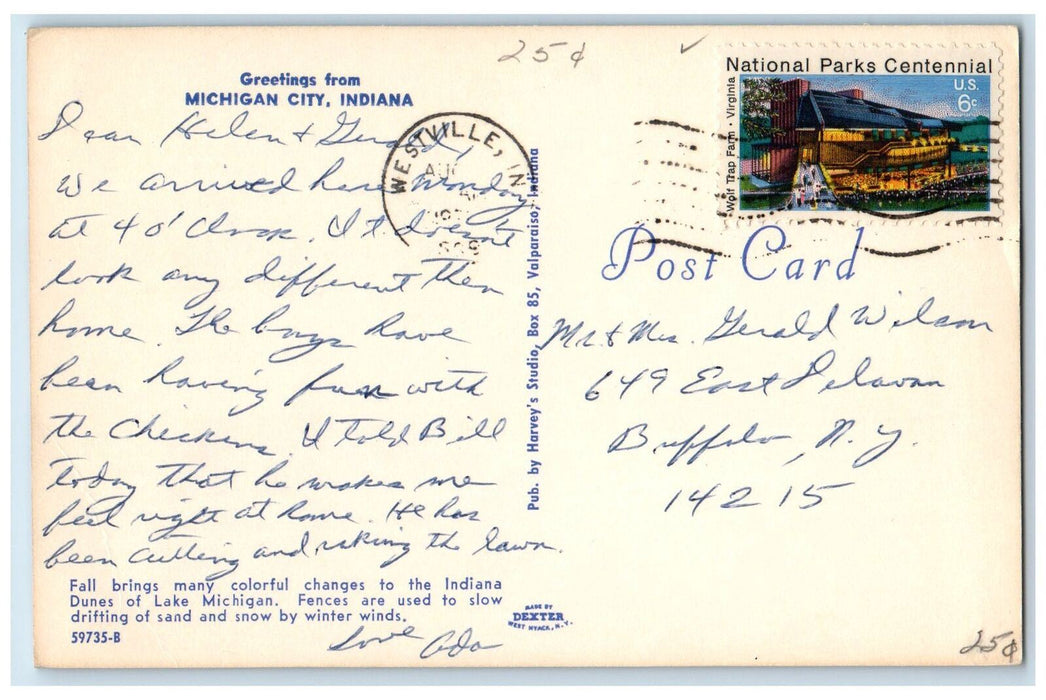 25¢
Greetings from
MICHIGAN CITY, INDIANA
Dear Helen & Gerald,
We arrived here Monday
at 4 o'clock. It doesn't
look any different then
home. The boys have
been having fun with
the chickens. I told Bill
today that he makes me
feel right at home. He has
been cutting and raking the lawn.
Fall brings many colorful changes to the Indiana
Dunes of Lake Michigan. Fences are used to slow
drifting of sand and snow by winter winds.
59735-B
Love Ada
WESTVILLE, IN
Pub. by Harvey's Studio, Box 85, Valparaiso, Indiana
MADE BY
DEXTER
WEST NYACK, N.Y.
National Parks Centennial
U.S.
6c
Wolf Trap Farm • Virginia
Post Card
Mr & Mrs. Gerald Wilson
649 East Delavan
Buffalo, N.Y.
14215
25¢